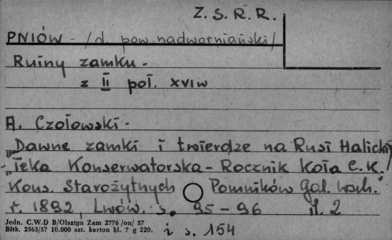 Z. S. R. R.
PNIÓW - /d. pow. nadworniański/
Ruiny zamku -
z II poł. XVI w
A. Czołowski -
"Dawne zamki i twierdze na Rusi Halickiej
- Teka Konserwatorska - Rocznik Koła C. K.
Kons. Starożytnych Pomników Gal. wsch.
r. 1892, Lwów. s. 95-96 il. 2
i s. 154
Jedn. C.W.D B/Olsztyn Zam 2776 /on/ 57
Błtk. 2563/57 10.000 szt. karton kl. 7 g 220.